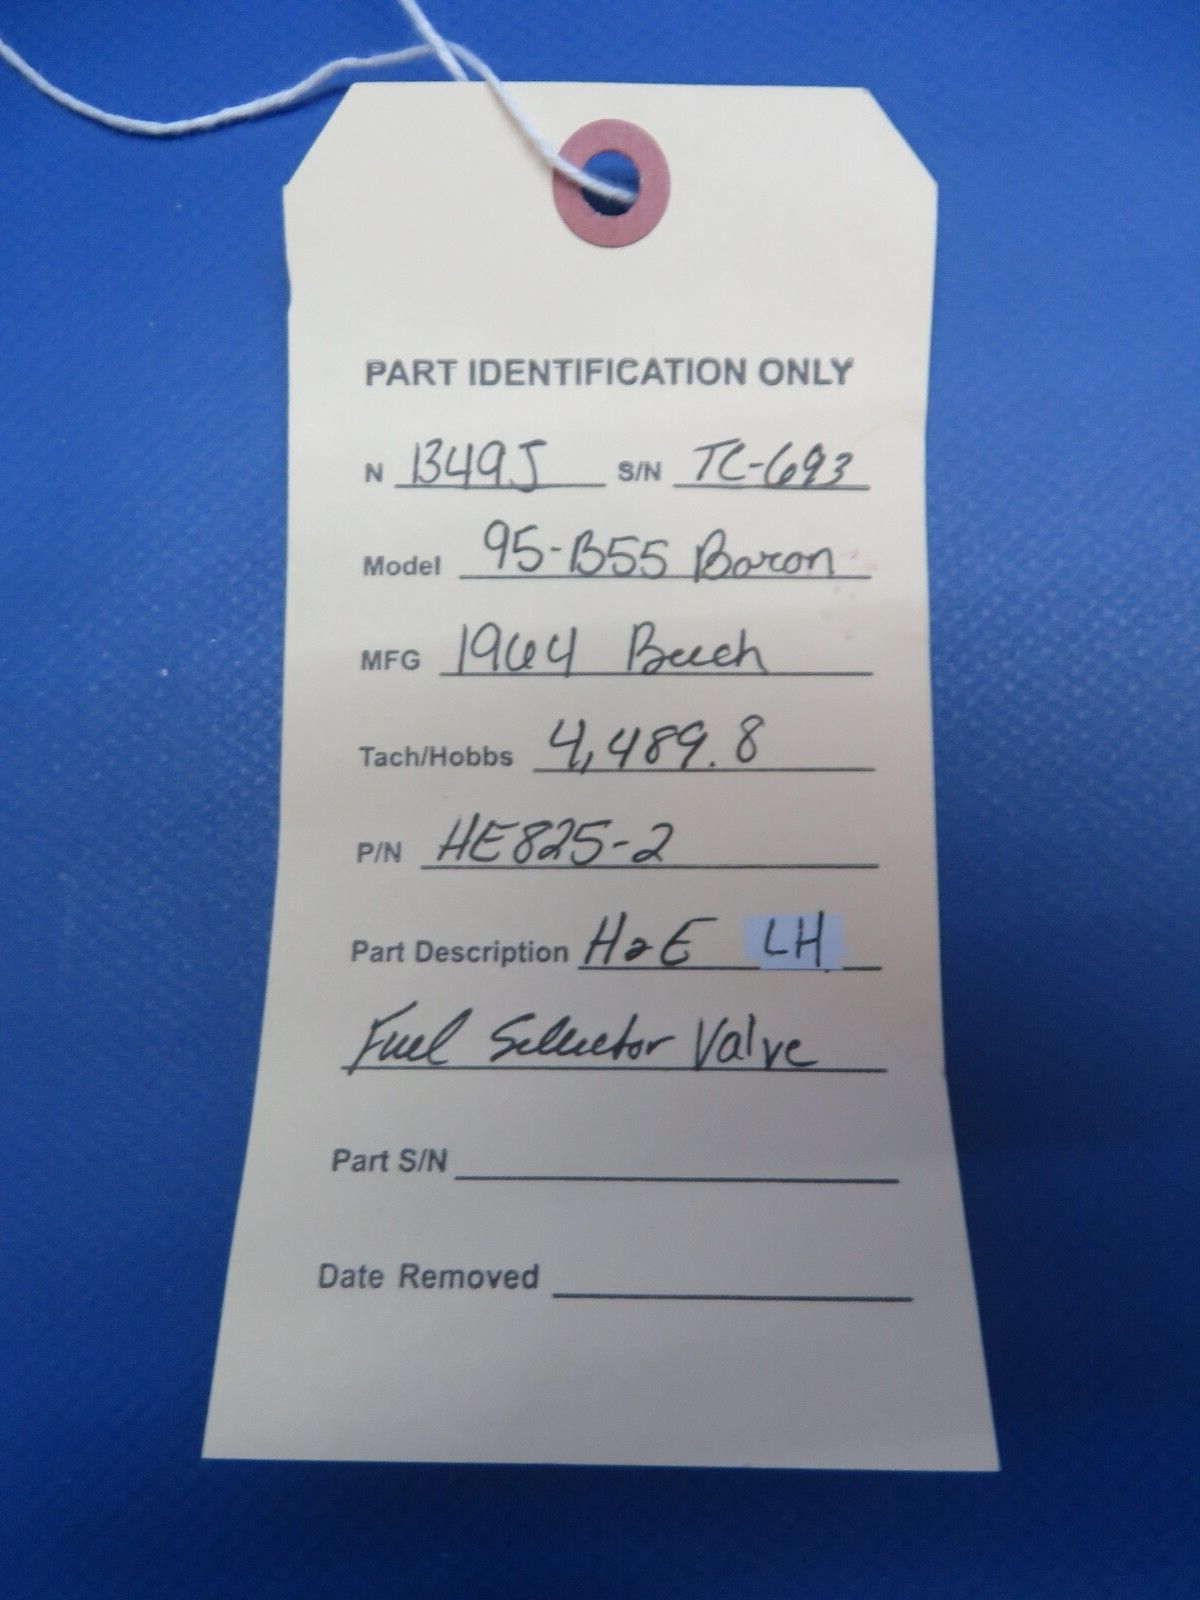 PART IDENTIFICATION ONLY
N 1349J S/N TC-693
Model 95-B55 Baron
MFG 1964 Beech
Tach/Hobbs 4,489.8
P/N HE825-2
Part Description H&E LH
Fuel Selector Valve
Part S/N
Date Removed